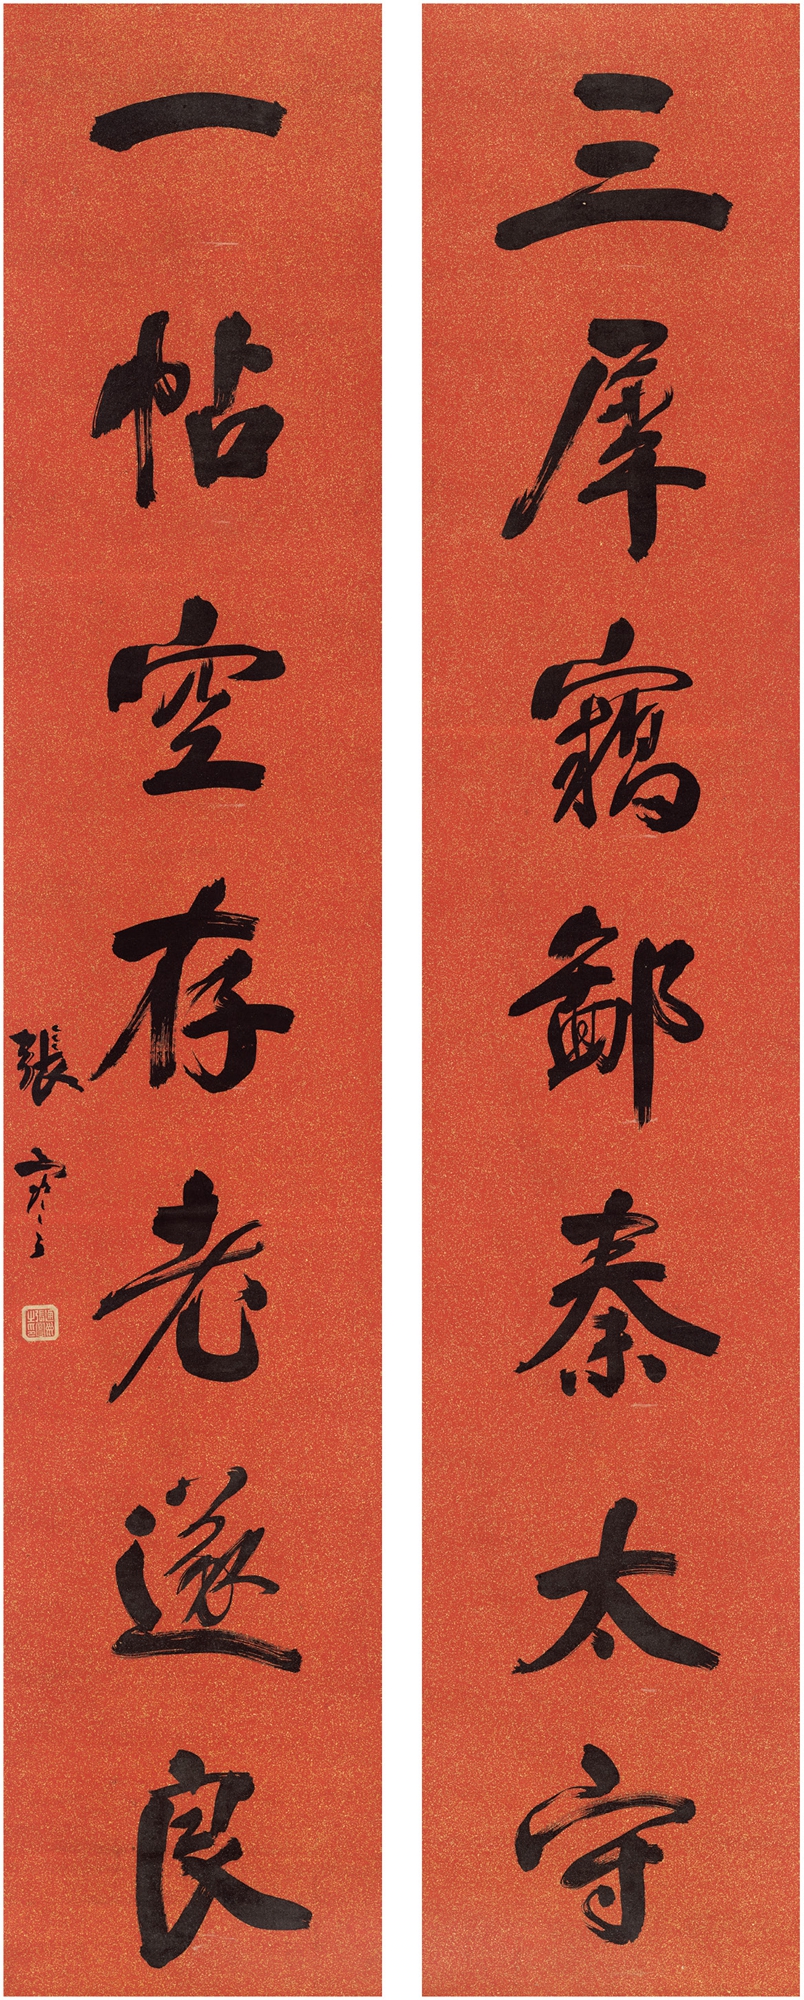 三犀窃鄙秦太守
一帖空存老遂良
張寒